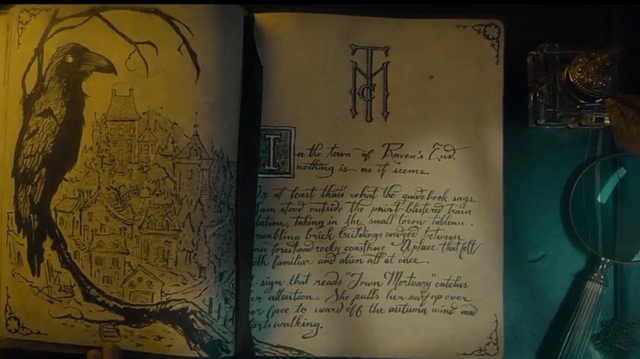 TMC
In the town of Raven's End,
nothing is as it seems.
Or at least that's what the guidebook says.
Sam stood outside the paint-blistered train
station, taking in the small town tableau.
Crumbling brick buildings wedged between
forest and rocky coastline. A place that felt
both familiar and alien all at once.
sign that reads "Town Mortuary" catches
her attention. She pulls her scarf up over
her face to ward off the autumn wind and
starts walking.